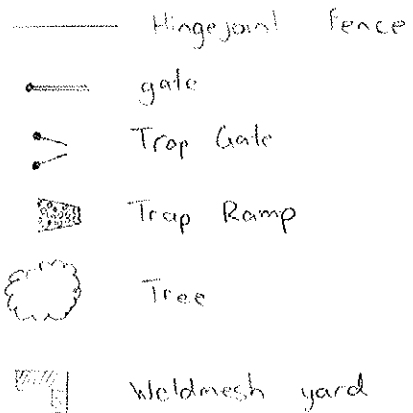 Hingejoint Fence
gate
Trap Gate
Trap Ramp
Tree
Weldmesh yard